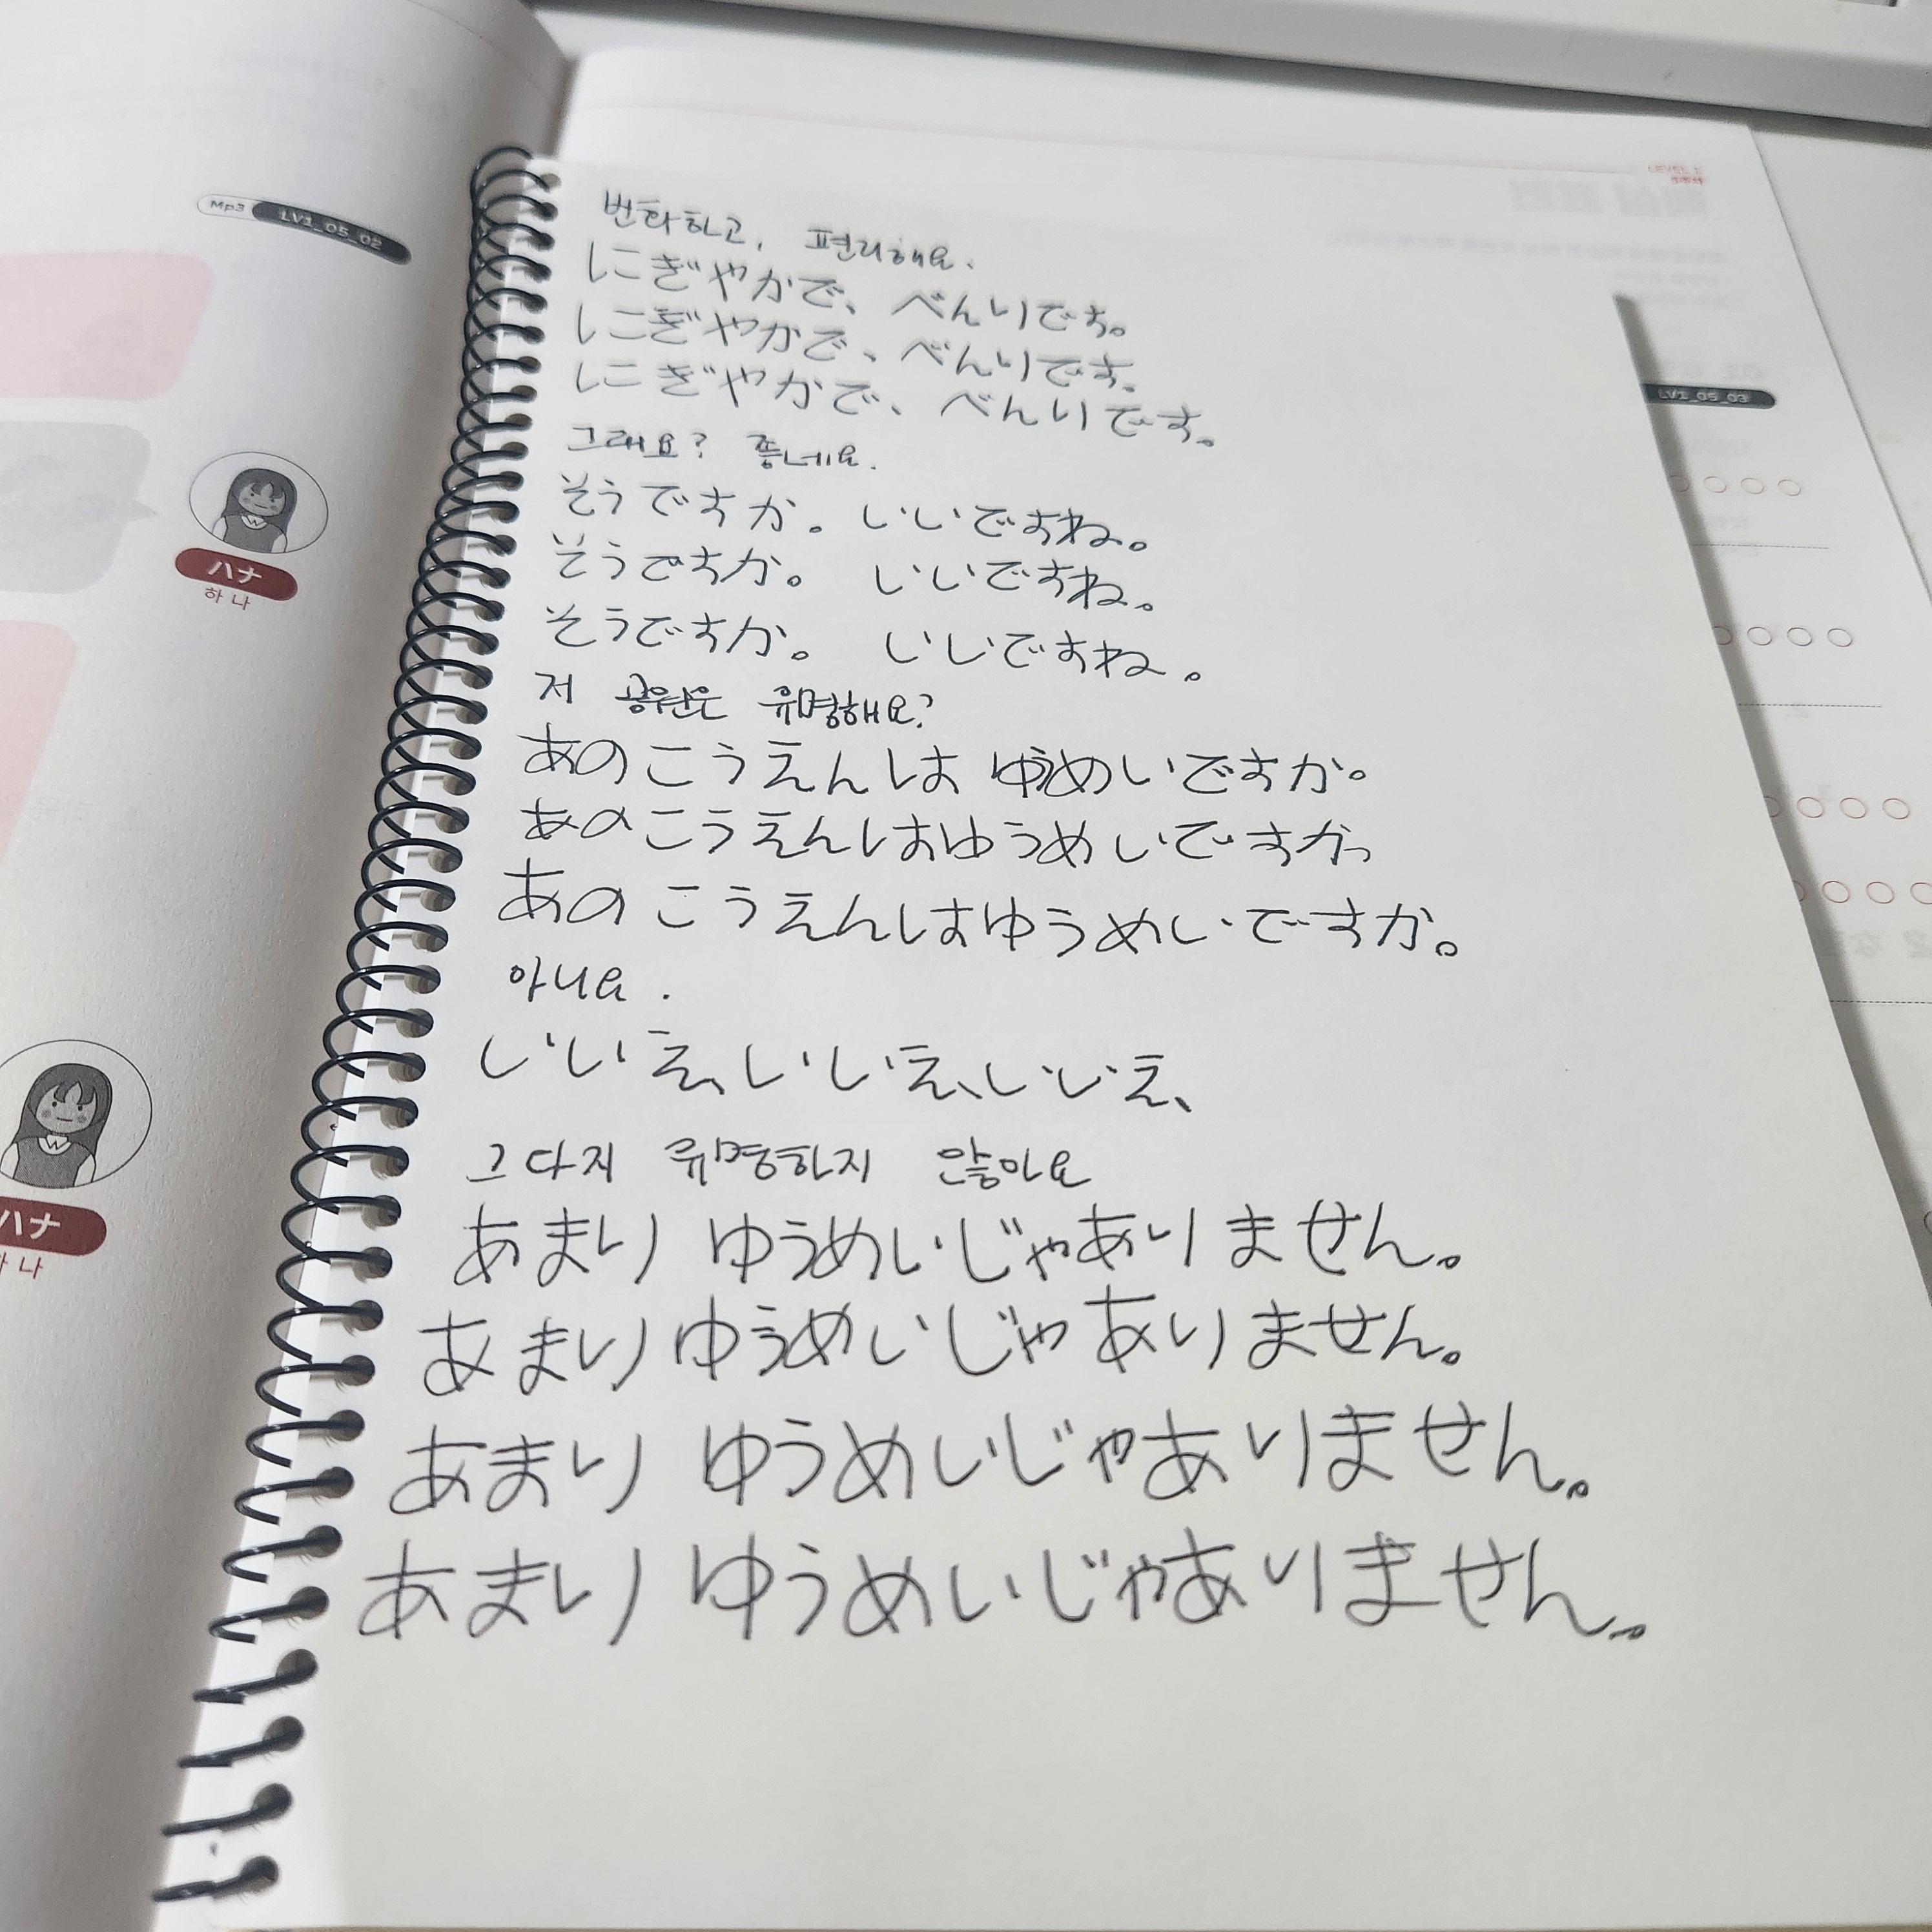 Mp3 LV1_05_02
ハナ
하나
ハナ
LEVEL 1
LV1_05_03
번화하고, 편리해요.
にぎやかで、べんりです。
にぎやかで、べんりです。
にぎやかで、べんりです。
그래요? 좋네요.
そうですか。いいですね。
そうですか。 いいですね。
そうですか。 いいですね。
저 공원은 유명해요?
あのこうえんは ゆうめいですか。
あのこうえんはゆうめいですか。
あのこうえんはゆうめいですか。
아니요.
いいえ、いいえ、いいえ、
그다지 유명하지 않아요
あまり ゆうめいじゃありません。
あまりゆうめいじゃありません。
あまり ゆうめいじゃありません。
あまり ゆうめいじゃありません。